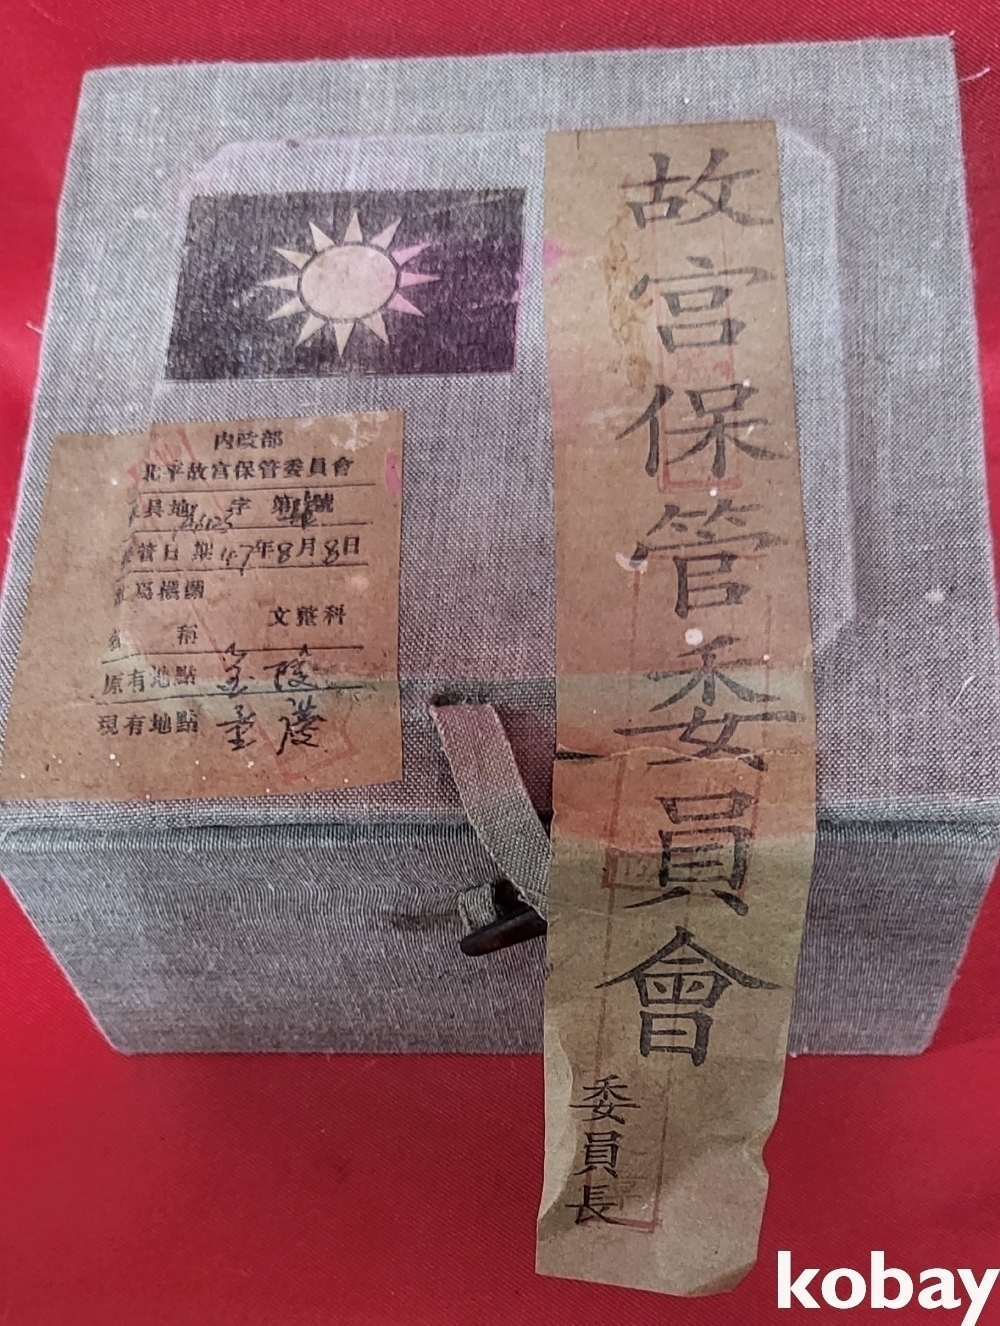 故宮保管委員會
委員長
內政部
北平故宮保管委員會
具地 字 第 號
管日期 47年8月8日
為機關
稱 文整科
原有地點 金陵
現有地點 金陵
kobay